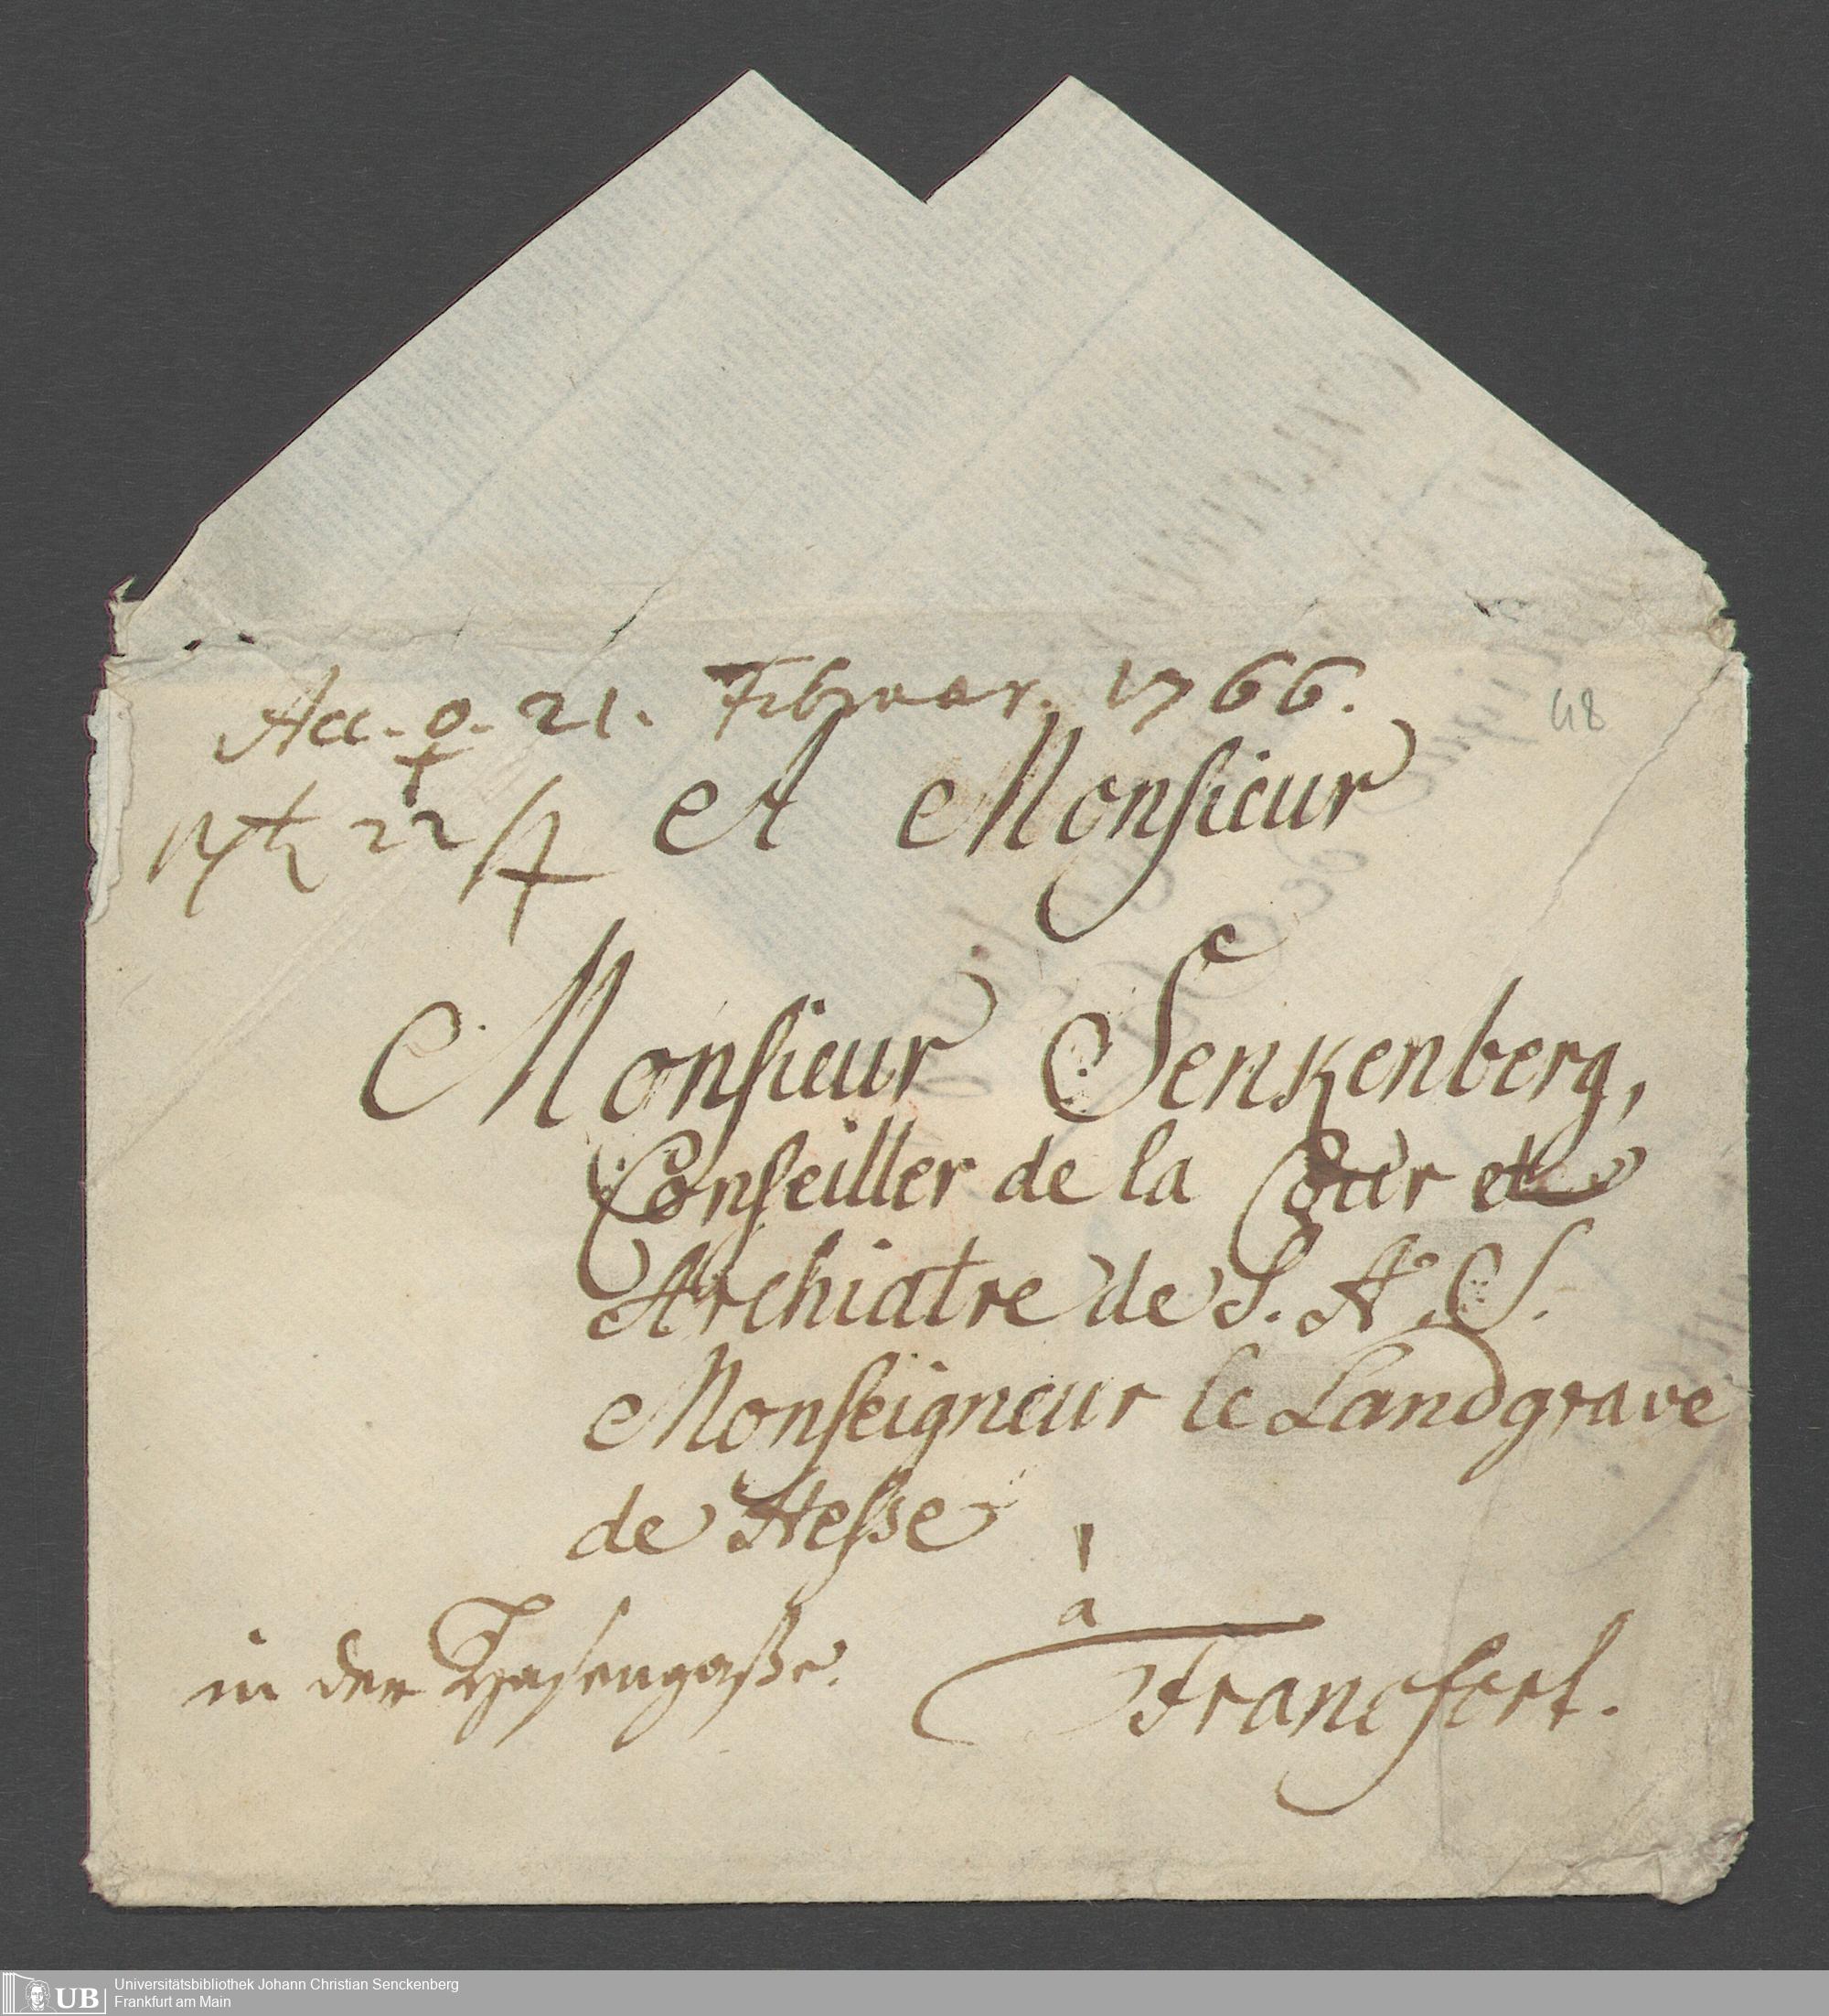 Acc. ♀. 21. Februar. 1766.
48
22
A Monsieur
Monsieur Senkenberg,
Conseiller de la Cour et
Archiatre de S. A. S.
Monseigneur le Landgrave
de Hesse
à
in der Hasengaße. Francfort.
UB Universitätsbibliothek Johann Christian Senckenberg
Frankfurt am Main